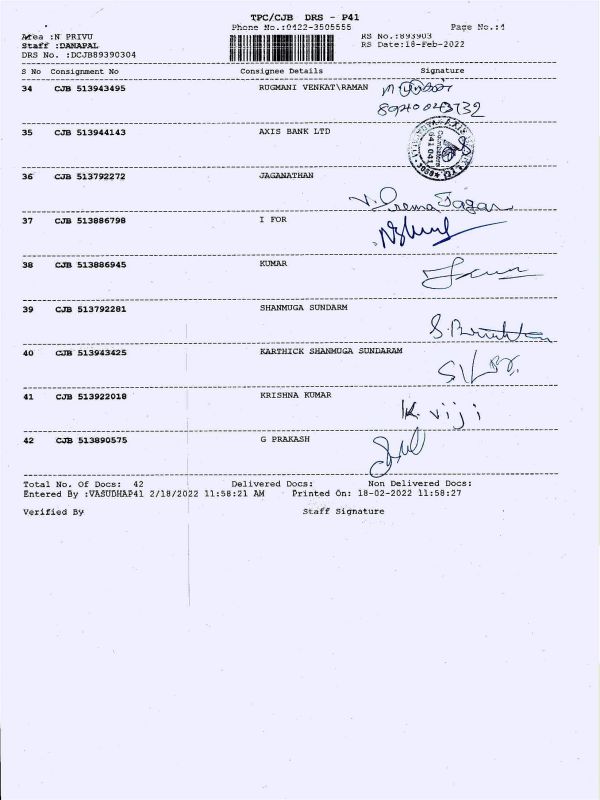 TPC/CJB DRS - P41
Phone No.:0422-3505555 Page No.:4
Area :N PRIVU RS No.:893903
Staff :DANAPAL RS Date:18-Feb-2022
DRS No. :DCJB89390304
S No Consignment No Consignee Details Signature
34 CJB 513943495 RUGMANI VENKAT\RAMAN
35 CJB 513944143 AXIS BANK LTD
36 CJB 513792272 JAGANATHAN
V. Prema Jagan
37 CJB 513886798 I FOR
38 CJB 513886945 KUMAR
39 CJB 513792281 SHANMUGA SUNDARM
40 CJB 513943425 KARTHICK SHANMUGA SUNDARAM
41 CJB 513922018 KRISHNA KUMAR
K. viji
42 CJB 513890575 G PRAKASH
Total No. Of Docs: 42 Delivered Docs: Non Delivered Docs:
Entered By :VASUDHAP41 2/18/2022 11:58:21 AM Printed On: 18-02-2022 11:58:27
Verified By Staff Signature